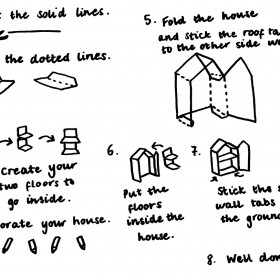 the solid lines.
the dotted lines.
Create your
two floors to
go inside.
your house.
5. Fold the house
and stick the roof
to the other side
6.
Put the
floors
inside the
house.
7.
Stick the
wall tabs
the
8. Well